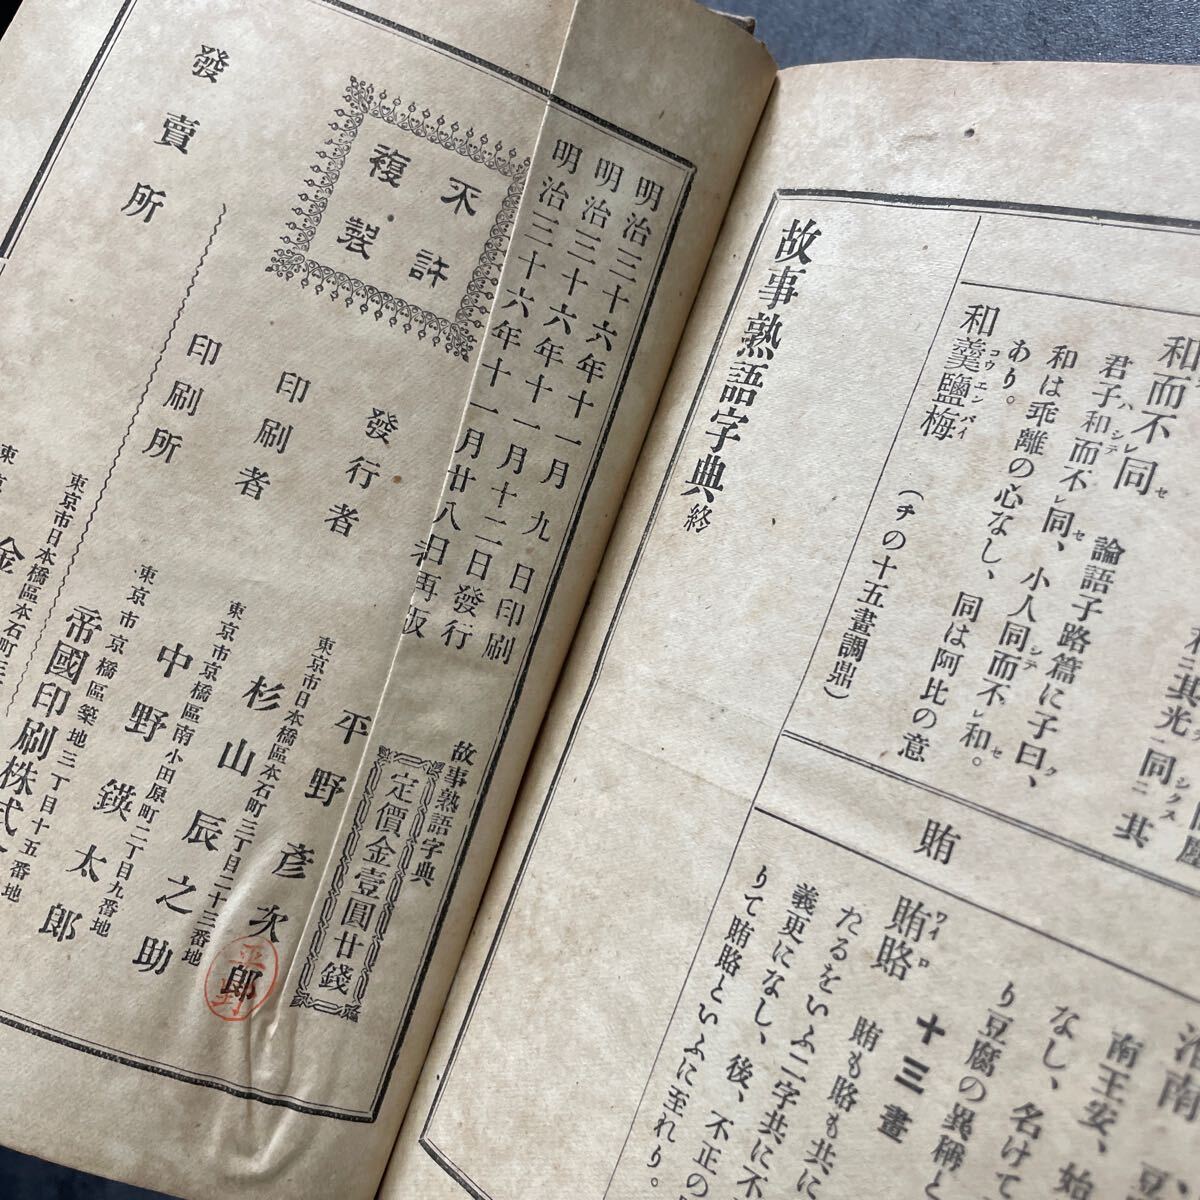 和而不同 論語子路篇に子曰、
君子和而不レ同、小人同而不レ和。
和は乖離の心なし、同は阿比の意
あり。
和羹鹽梅 (チの十五畫調鼎)
コウエンバイ
故事熟語字典終
賄
十三畫
賄賂 賄も賂も共に
ワイロ
たるをいふ二字共に不
義更になし、後、不正の
りて賄賂といふに至れり。
南王安、始
なし、名けて
り豆腐の異稱と
明治三十六年十一月九日印刷
明治三十六年十一月十二日發行
明治三十六年十一月廿八日再版
故事熟語字典
定價金壹圓廿錢
不許
複製
發行者
東京市日本橋區本石町三丁目二十三番地
杉山辰之助
平野彦次郎
印刷者
東京市京橋區南小田原町二丁目九番地
中野鍈太郎
印刷所
東京市京橋區築地三丁目十五番地
帝國印刷株式
發賣所
東京市日本橋區本石町三
金